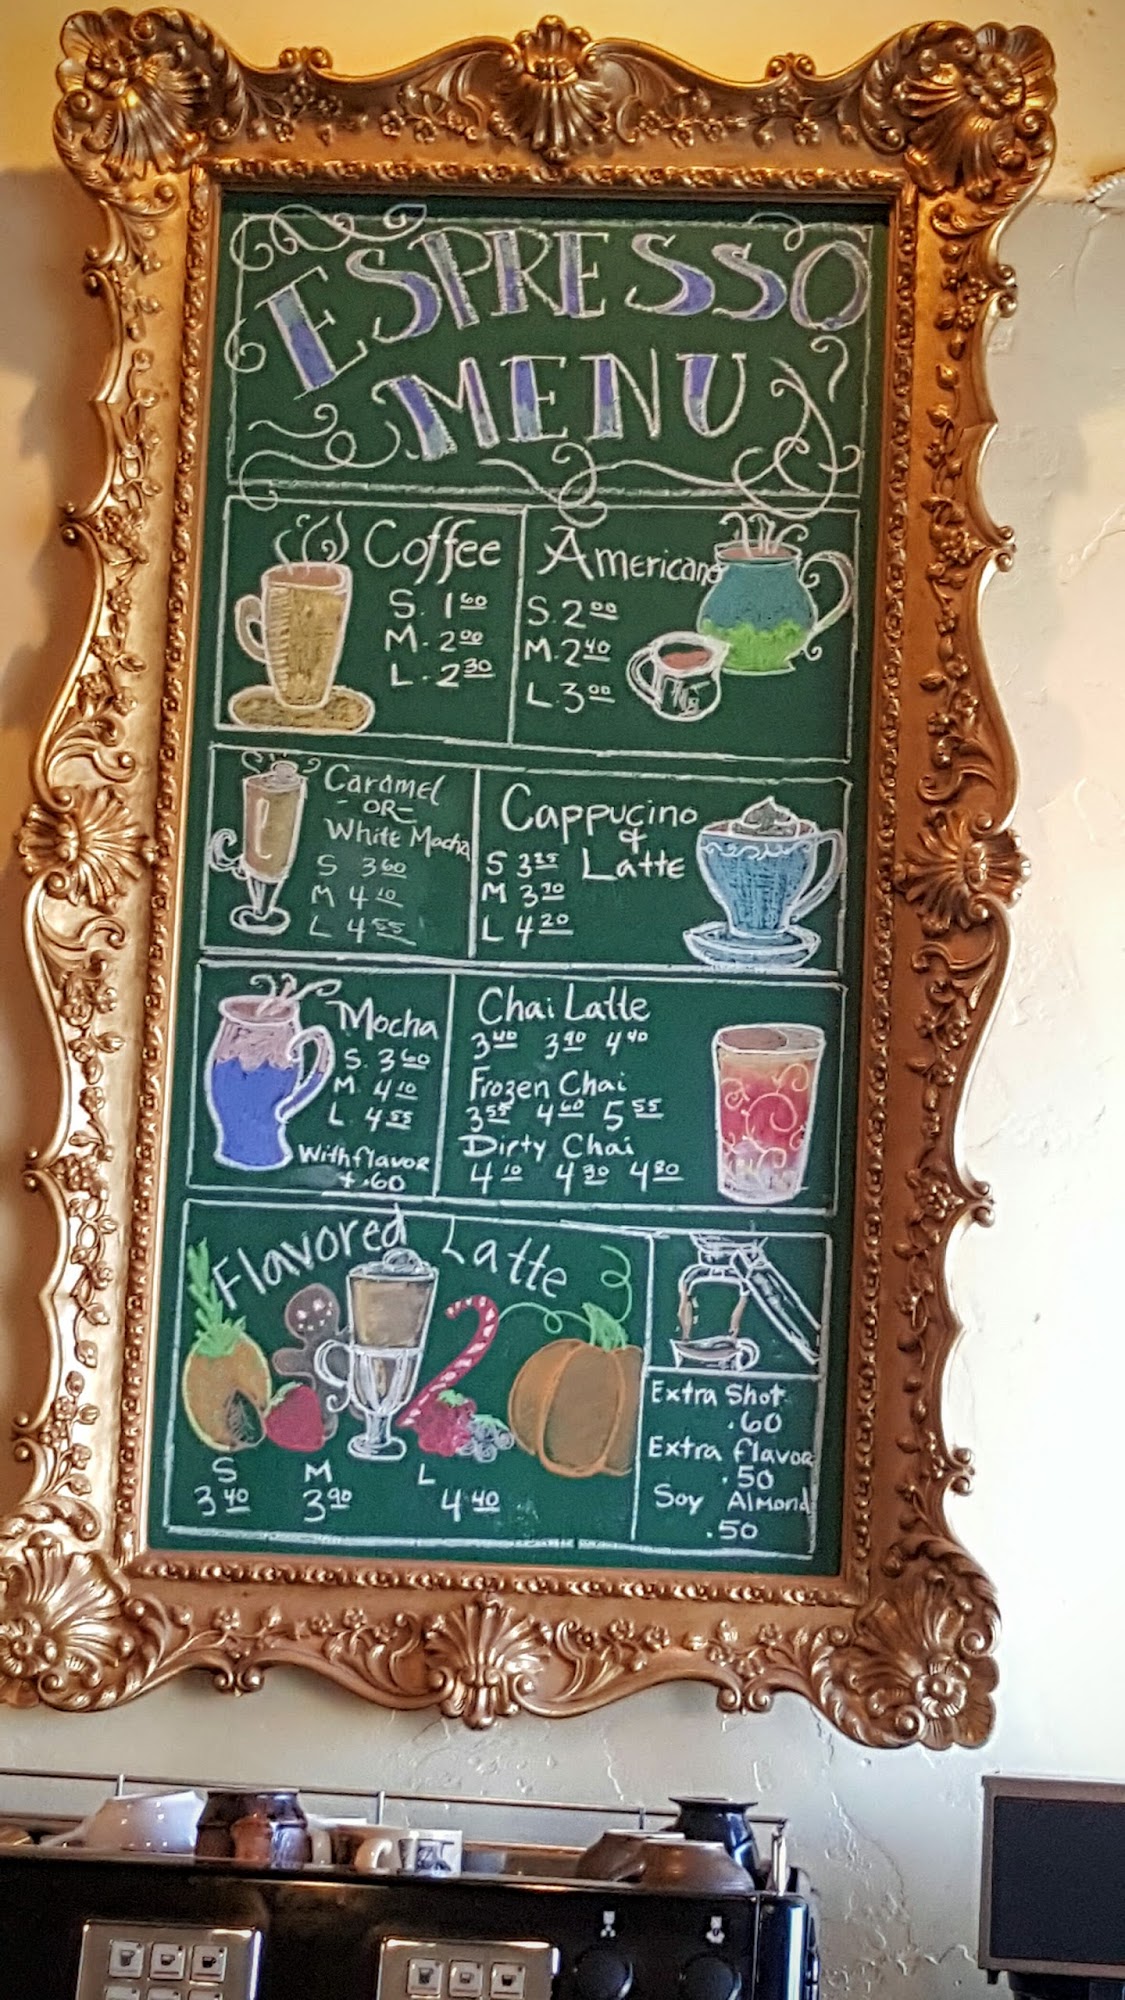 ESPRESSO
MENU
Coffee
S. 1 60
M. 2 00
L. 2 30
Americano
S. 2 00
M. 2 40
L. 3 00
Caramel
-OR-
White Mocha
S 3 60
M 4 10
L 4 55
Cappucino
&
Latte
S 3 25
M 3 70
L 4 20
Mocha
S. 3 60
M. 4 10
L. 4 55
With flavor
+.60
Chai Latte
3 40 3 90 4 40
Frozen Chai
3 55 4 60 5 55
Dirty Chai
4 10 4 30 4 80
Flavored Latte
S M L
3 40 3 90 4 40
Extra Shot
.60
Extra flavor
.50
Soy Almond
.50